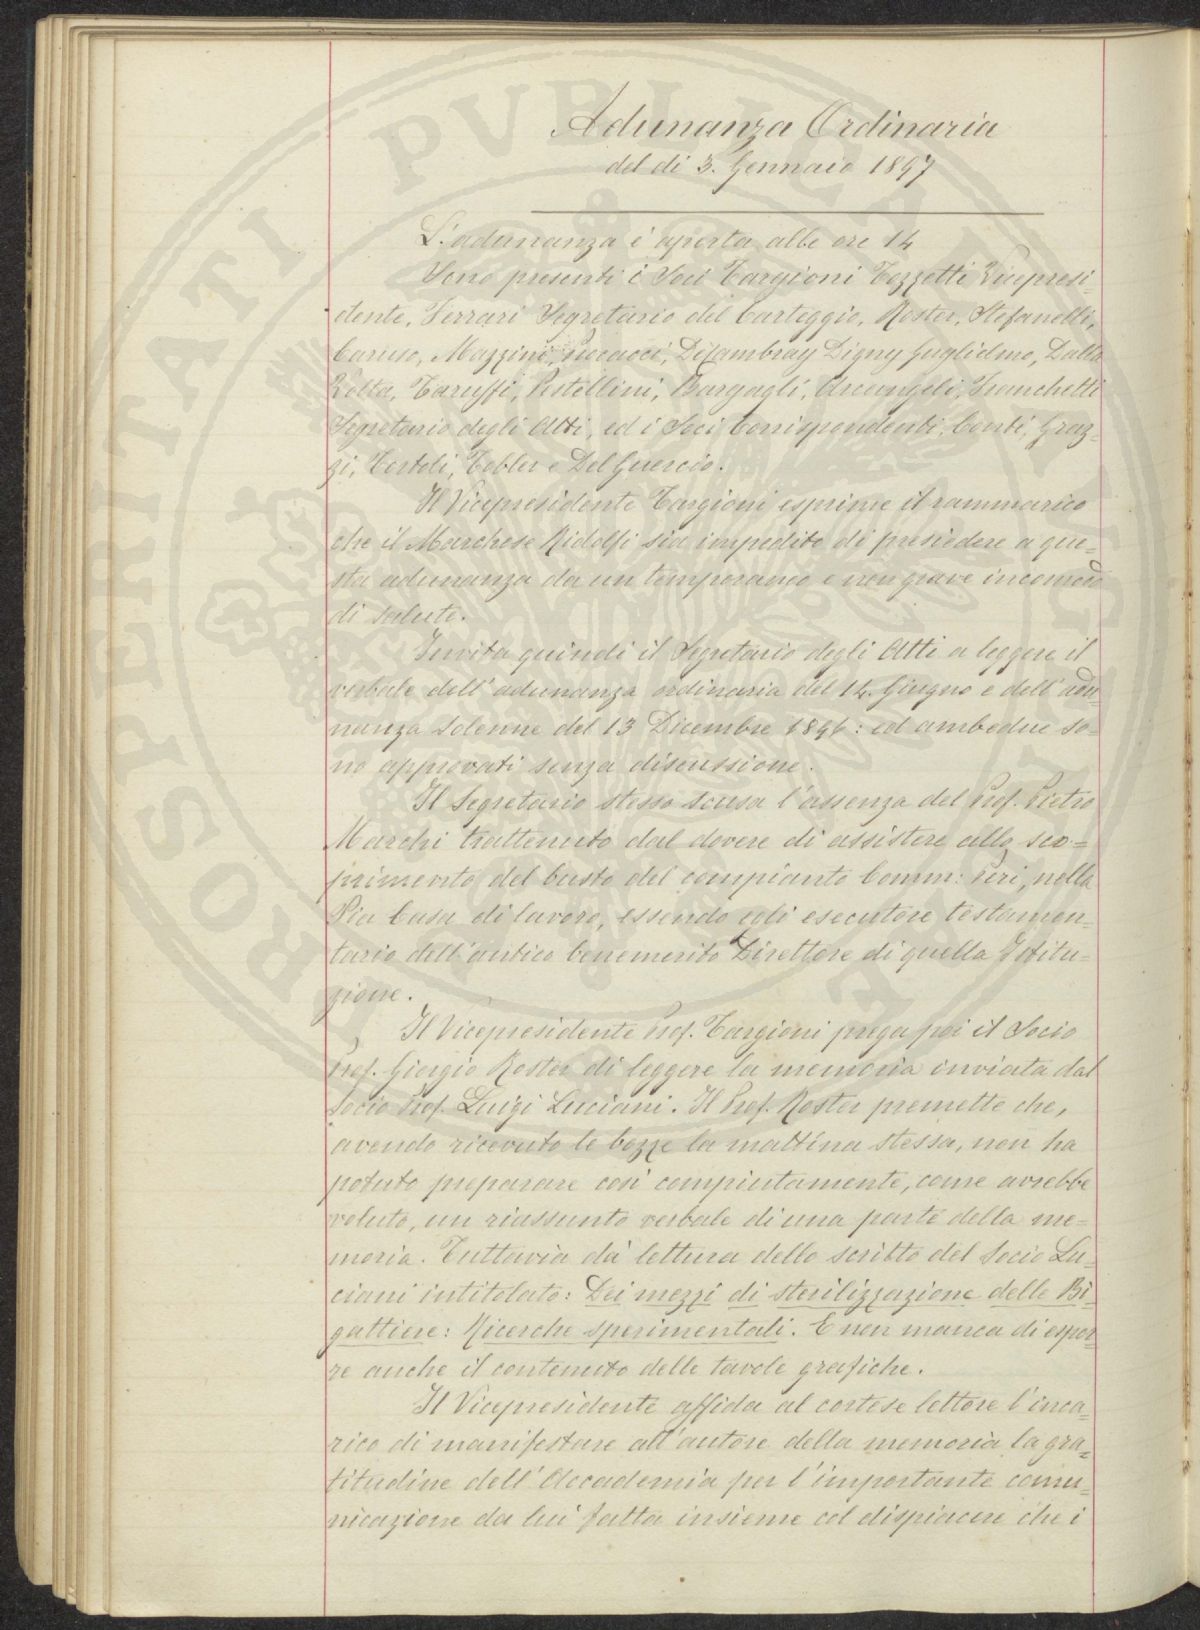 Adunanza Ordinaria
del dì 3. Gennaio 1897
L'adunanza è aperta alle ore 14
Sono presenti i Soci Targioni Tozzetti Vicepresi-
dente, Ferrari Segretario del Carteggio, Roster, Stefanelli,
Caruso, Mazzini, Pucacci, Digny Guglielmo, Dalla
Volta, Taruffi, Pestellini, Bargagli, Arcangeli, Franchetti
Segretario degli Atti, ed i Soci Corrispondenti, Conti, Graz-
zi, Bertoli, Tobler e Del Guercio.
Il Vicepresidente Targioni esprime il rammarico
che il Marchese Ridolfi sia impedito di presiedere a que-
sta adunanza da un temporaneo e non grave incomodo
di salute.
Invita quindi il Segretario degli Atti a leggere il
verbale dell'adunanza ordinaria del 14. Giugno e dell'adu-
nanza solenne del 13 Dicembre 1896: ed ambedue so-
no approvati senza discussione.
Il Segretario stesso scusa l'assenza del Prof. Pietro
Marchi trattenuto dal dovere di assistere allo sco=
primento del busto del compianto Comm: Peri, nella
Pia Casa di lavoro, essendo egli esecutore testamen-
tario dell'antico benemerito Direttore di quella Istitu-
zione.
Il Vicepresidente Prof. Targioni prega poi il Socio
Prof. Giorgio Roster di leggere la memoria inviata dal
Socio Prof. Luigi Luciani. Il Prof. Roster premette che,
avendo ricevuto le bozze la mattina stessa, non ha
potuto preparare così compiutamente, come avrebbe
voluto, un riassunto verbale di una parte della me=
moria. Tuttavia dà lettura dello scritto del Socio Lu-
ciani intitolato: Dei mezzi di sterilizzazione delle Bi-
gattiere: Ricerche sperimentali. E non manca di espor-
re anche il contenuto delle tavole grafiche.
Il Vicepresidente affida al cortese lettore l'inca-
rico di manifestare all'autore della memoria la gra=
titudine dell'Accademia per l'importante comu-
nicazione da lui fatta insieme col dispiacere che i
PROSPERITATI PVBLICAE AVGENDAE